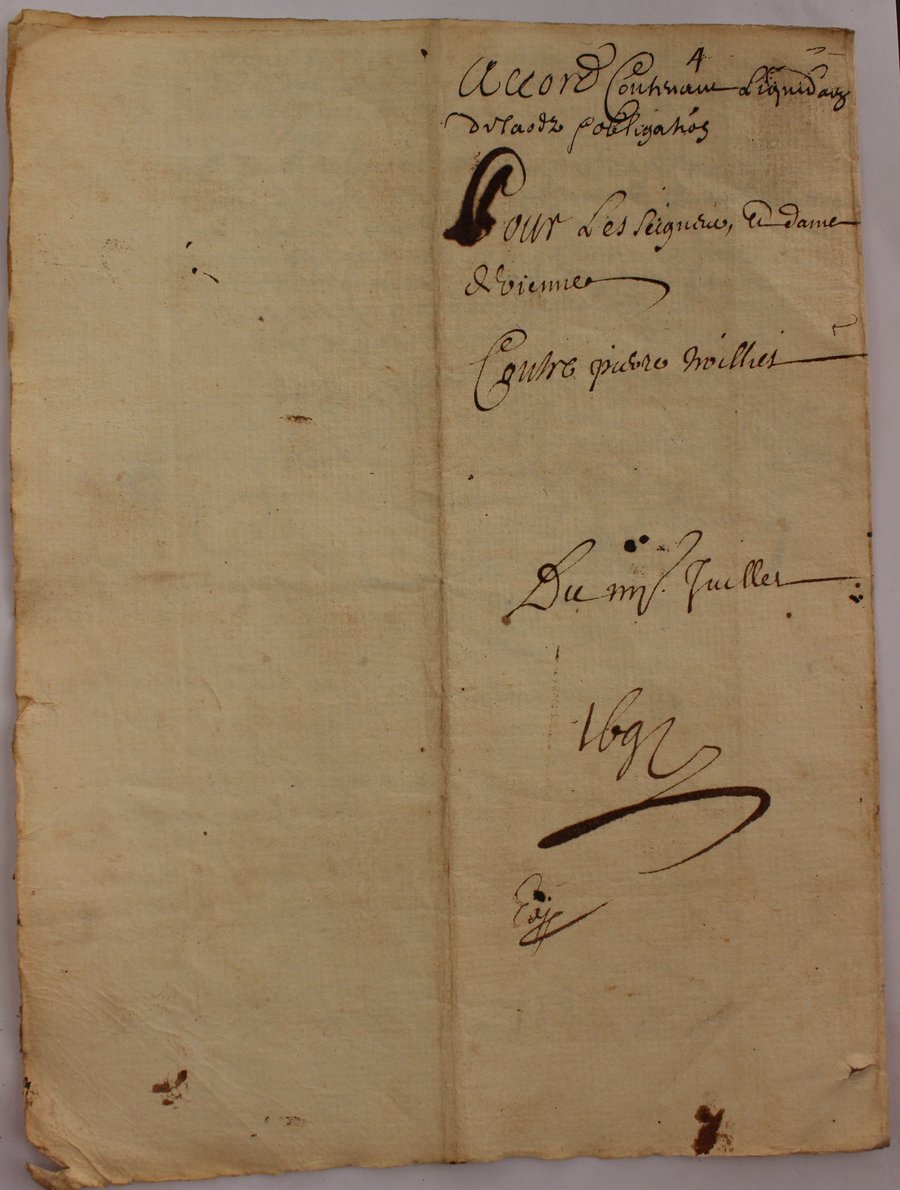 4
Accord Contenant Liquida͠on
de laodz & obligatiõs
Pour Les Seigneur, Et dame
de vienne
Contre pierre
Du iiijᵉ. Juillet
1692